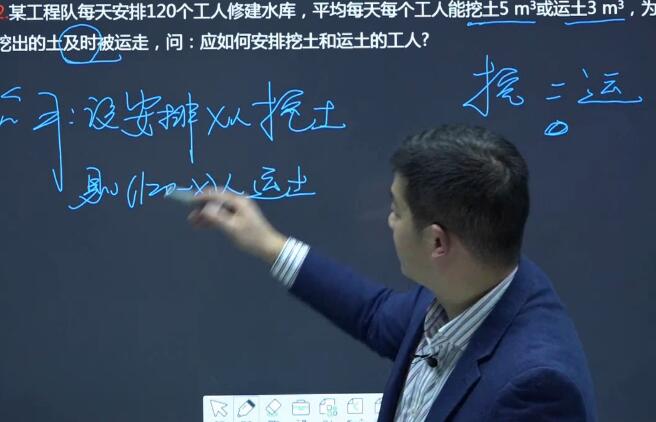 2.某工程队每天安排120个工人修建水库，平均每天每个工人能挖土5 m³或运土3 m³，为
挖出的土及时被运走，问：应如何安排挖土和运土的工人?
挖 = 运
解：设安排x人挖土
则(120-x)人运土